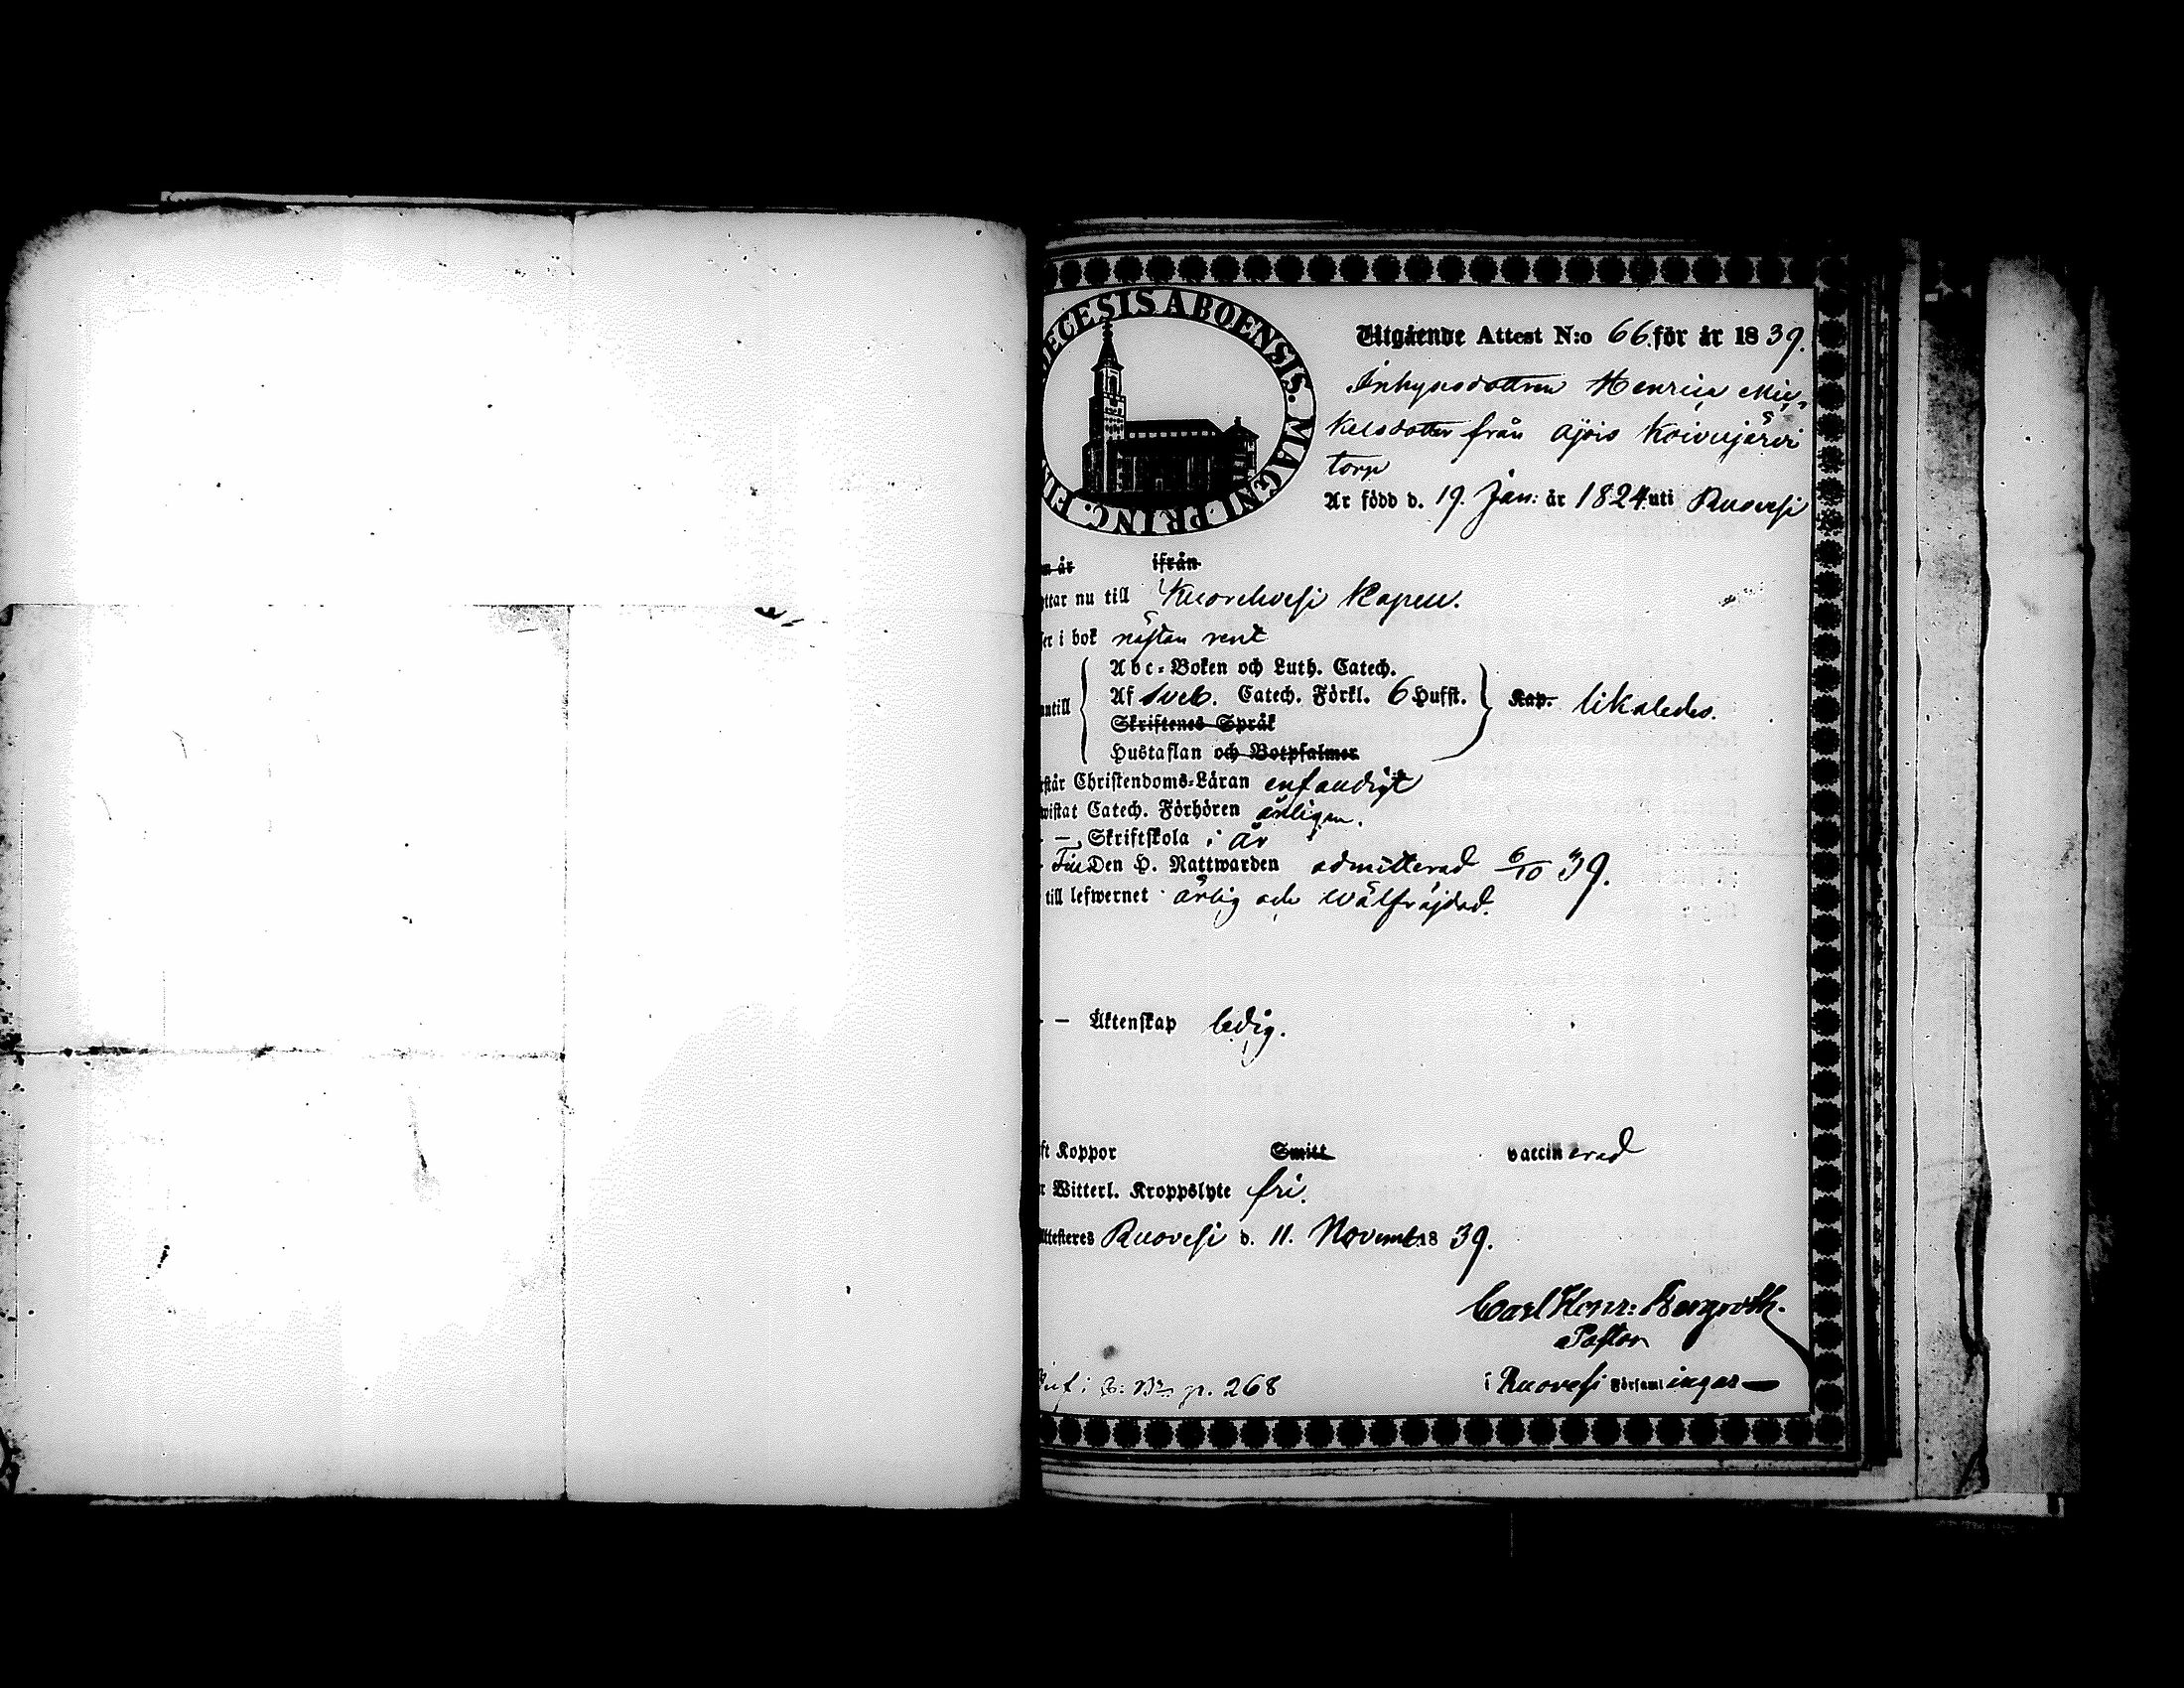 DIECESIS ABOENSIS. MAGNI PRINC. FIN
Utgående Attest N:o 66. för år 1839.
Inhysesdottren Henrica Mic-
kelsdotter från Äjöis Koivujärvi
torp
Är född d. 19. Jan: år 1824 uti Ruovesi
n år ifrån
ttar nu till Kuorehvesi Kapell.
ser i bok nästan rent
Abc-Boken och Luth. Catech.
Af Sveb. Catech. Förkl. 6 Hufst.
antill Kap. likaledes.
Skriftenes Språk
Hustaflan och Botpsalmer
rstår Christendoms-Läran enfaldigt
wistat Catech. Förhören årligen.
- — Skriftskola i år
- Till Den H. Nattwarden admitterad 6/10 39.
till lefwernet ärlig och wälfräjdad.
- — Äktenskap ledig.
ft Koppor Smitt vaccinerad
r Witterl. Kroppslyte fri.
Attesteres Ruovesi d. 11. Novemb. 1839.
Carl Henr: Bergroth.
Pastor
i Ruovesi Församlingar —
p. 268